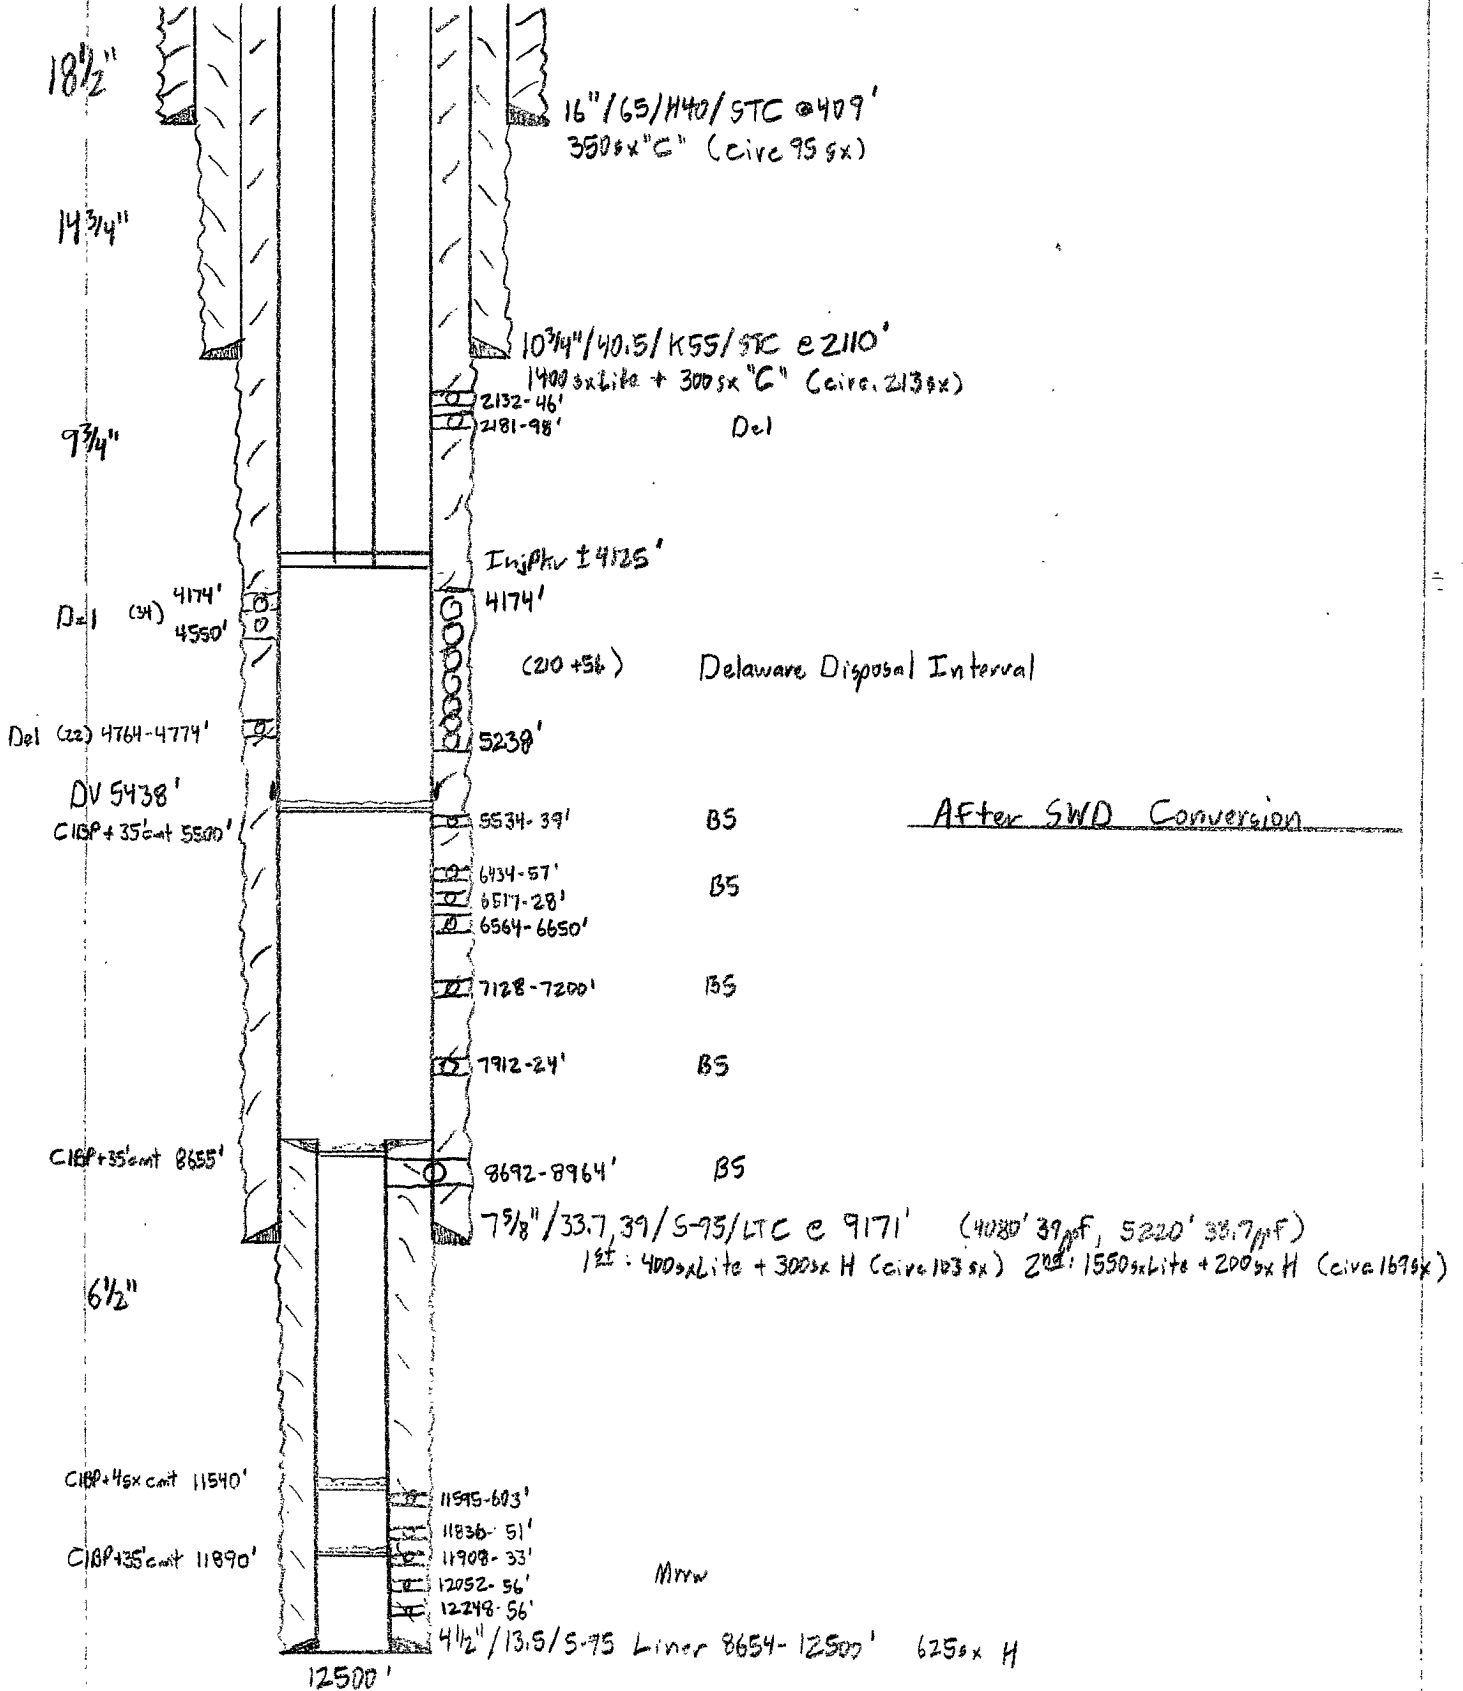 18 1/2"
16"/65/H40/STC @ 409'
350sx "C" (circ 95 sx)
14 3/4"
10 3/4"/40.5/K55/STC @ 2110'
1400 sx Lite + 300 sx "C" (circ. 213 sx)
2132-46'
2181-98'
Del
9 3/4"
InjPkr ± 4125'
Del (34) 4174'
4550'
4174'
(210 + 56) Delaware Disposal Interval
Del (22) 4764-4774'
5238'
DV 5438'
CIBP + 35' cmt 5500'
5534-39' BS
After SWD Conversion
6434-57'
6517-28'
BS
6564-6650'
7128-7200' BS
7912-24' BS
CIBP+35' cmt 8655'
8692-8964' BS
7 5/8"/33.7, 39/S-95/LTC @ 9171' (4080' 39ppf, 5220' 33.7ppf)
1st: 400sxLite + 300sx H (circ 103 sx) 2nd: 1550sxLite + 200sx H (circ 169sx)
6 1/2"
CIBP+4sx cmt 11540'
11595-603'
11836-51'
CIBP+35' cmt 11890'
11908-33'
12052-56'
Mrrw
12248-56'
4 1/2"/13.5/S-95 Liner 8654-12500' 625sx H
12500'